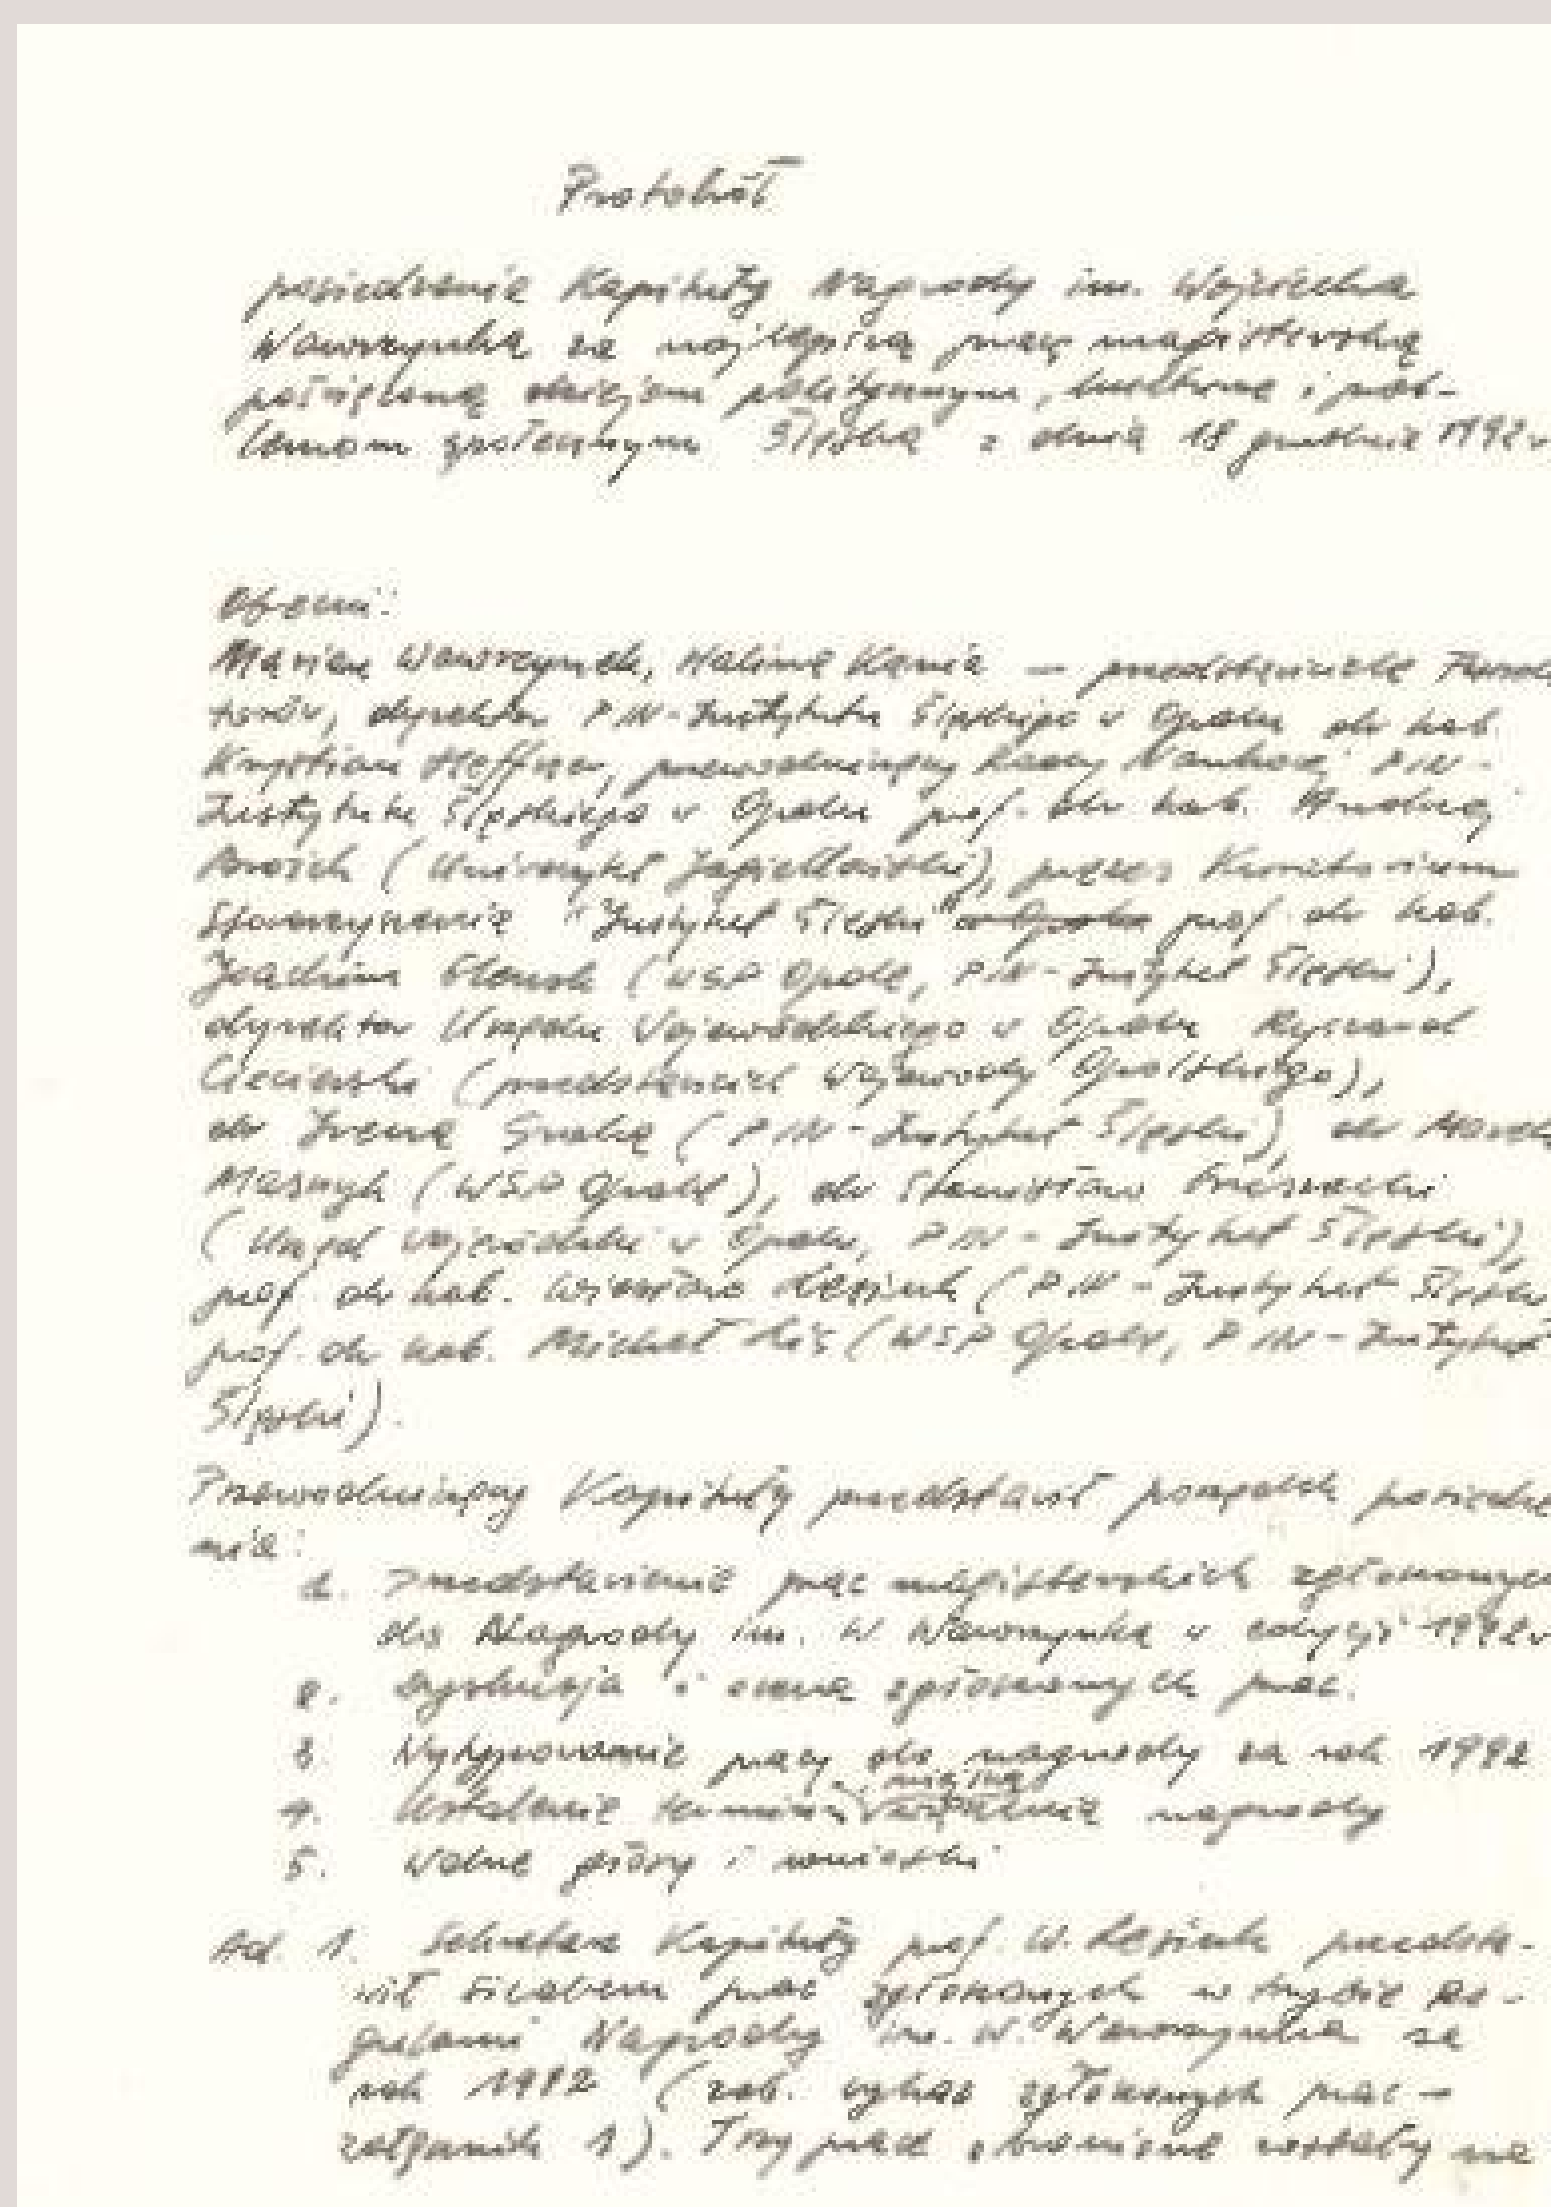 Protokół
posiedzenia Kapituły Nagrody im. Wojciecha
Wawrzynka za najlepszą pracę magisterską
poświęconą dziejom politycznym, kulturze i prob-
lemom społecznym Śląska z dnia 18 grudnia 1992 r
Obecni:
Marian Wawrzynek, Halina Kania — przedstawiciele
dyrektor PIN-Instytutu Śląskiego w Opolu dr hab.
Krystian Heffner, przewodniczący Rady Naukowej PIN-
Instytutu Śląskiego w Opolu prof. dr hab. Andrzej
Brożek (Uniwersytet Jagielloński), prezes Kuratorium
Stowarzyszenia "Instytut Śląski" prof. dr hab.
Joachim Glensk (WSP Opole, PIN-Instytut Śląski),
dyrektor Urzędu Wojewódzkiego w Opolu Ryszard
(przedstawiciel Wojewody Opolskiego),
dr Irena (PIN-Instytut Śląski), dr
Masnyk (WSP Opole), dr Stanisław
(Urząd Wojewódzki w Opolu, PIN-Instytut Śląski),
prof. dr hab. Wiesław Lesiuk (PIN-Instytut Śląski
prof. dr hab. Michał Lis (WSP Opole, PIN-Instytut
Śląski).
Przewodniczący Kapituły przedstawił porządek posiedze
nia:
1. Przedstawienie prac magisterskich zgłoszonych
do Nagrody im. W Wawrzynka w edycji 1992 r
2. Dyskusja i ocena zgłoszonych prac.
3. Wytypowanie pracy do nagrody za rok 1992
4. Ustalenie terminu i miejsca wręczenia nagrody
5. Wolne głosy i wnioski
Ad. 1. Sekretarz Kapituły prof. W. Lesiuk przedsta-
wił siedem prac zgłoszonych w trybie re-
gulamin Nagrody im. W. Wawrzynka za
rok 1992 (zob. wykaz zgłoszonych prac -
załącznik 1). Trzy prace obronione zostały na